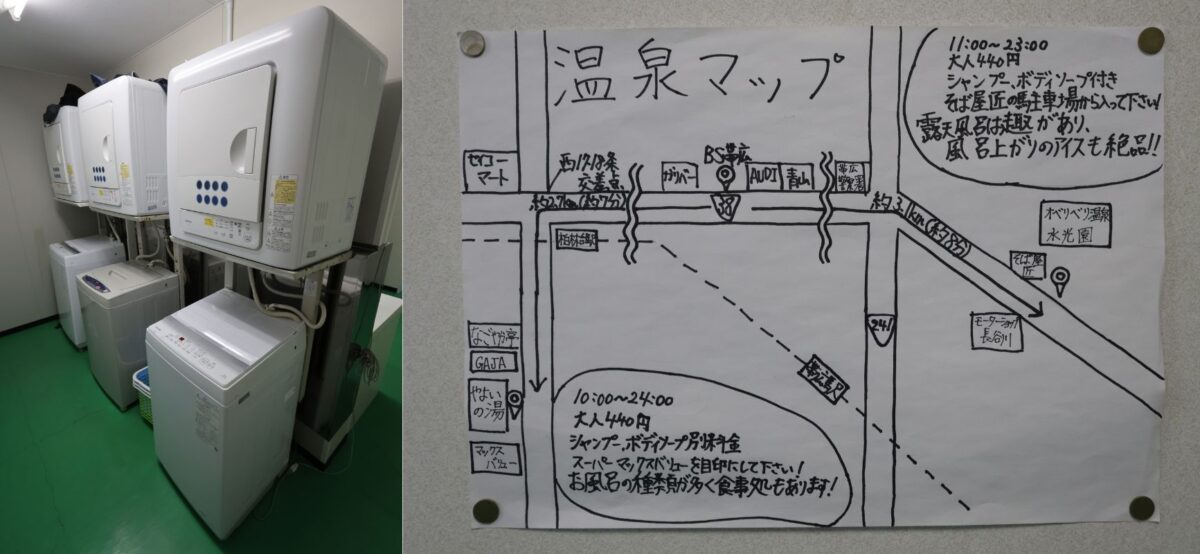 温泉マップ
11:00〜23:00
大人440円
シャンプー、ボディソープ付き
そば屋匠の駐車場から入って下さい!
露天風呂は趣があり、
風呂上がりのアイスも絶品!!
セイコー
マート
交差点
約2.7km(約7分)
ガリバー
BS帯広
AUDI
青山
38
約3.1km(約8分)
オベリベリ温泉
水光園
そば屋
匠
モーターショップ
長谷川
柏林台駅
241
帯広駅
なごやか亭
GAJA
やよい
の湯
マックス
バリュー
10:00〜24:00
大人440円
シャンプー、ボディソープ別料金
スーパーマックスバリューを目印にして下さい!
お風呂の種類が多く食事処もあります!